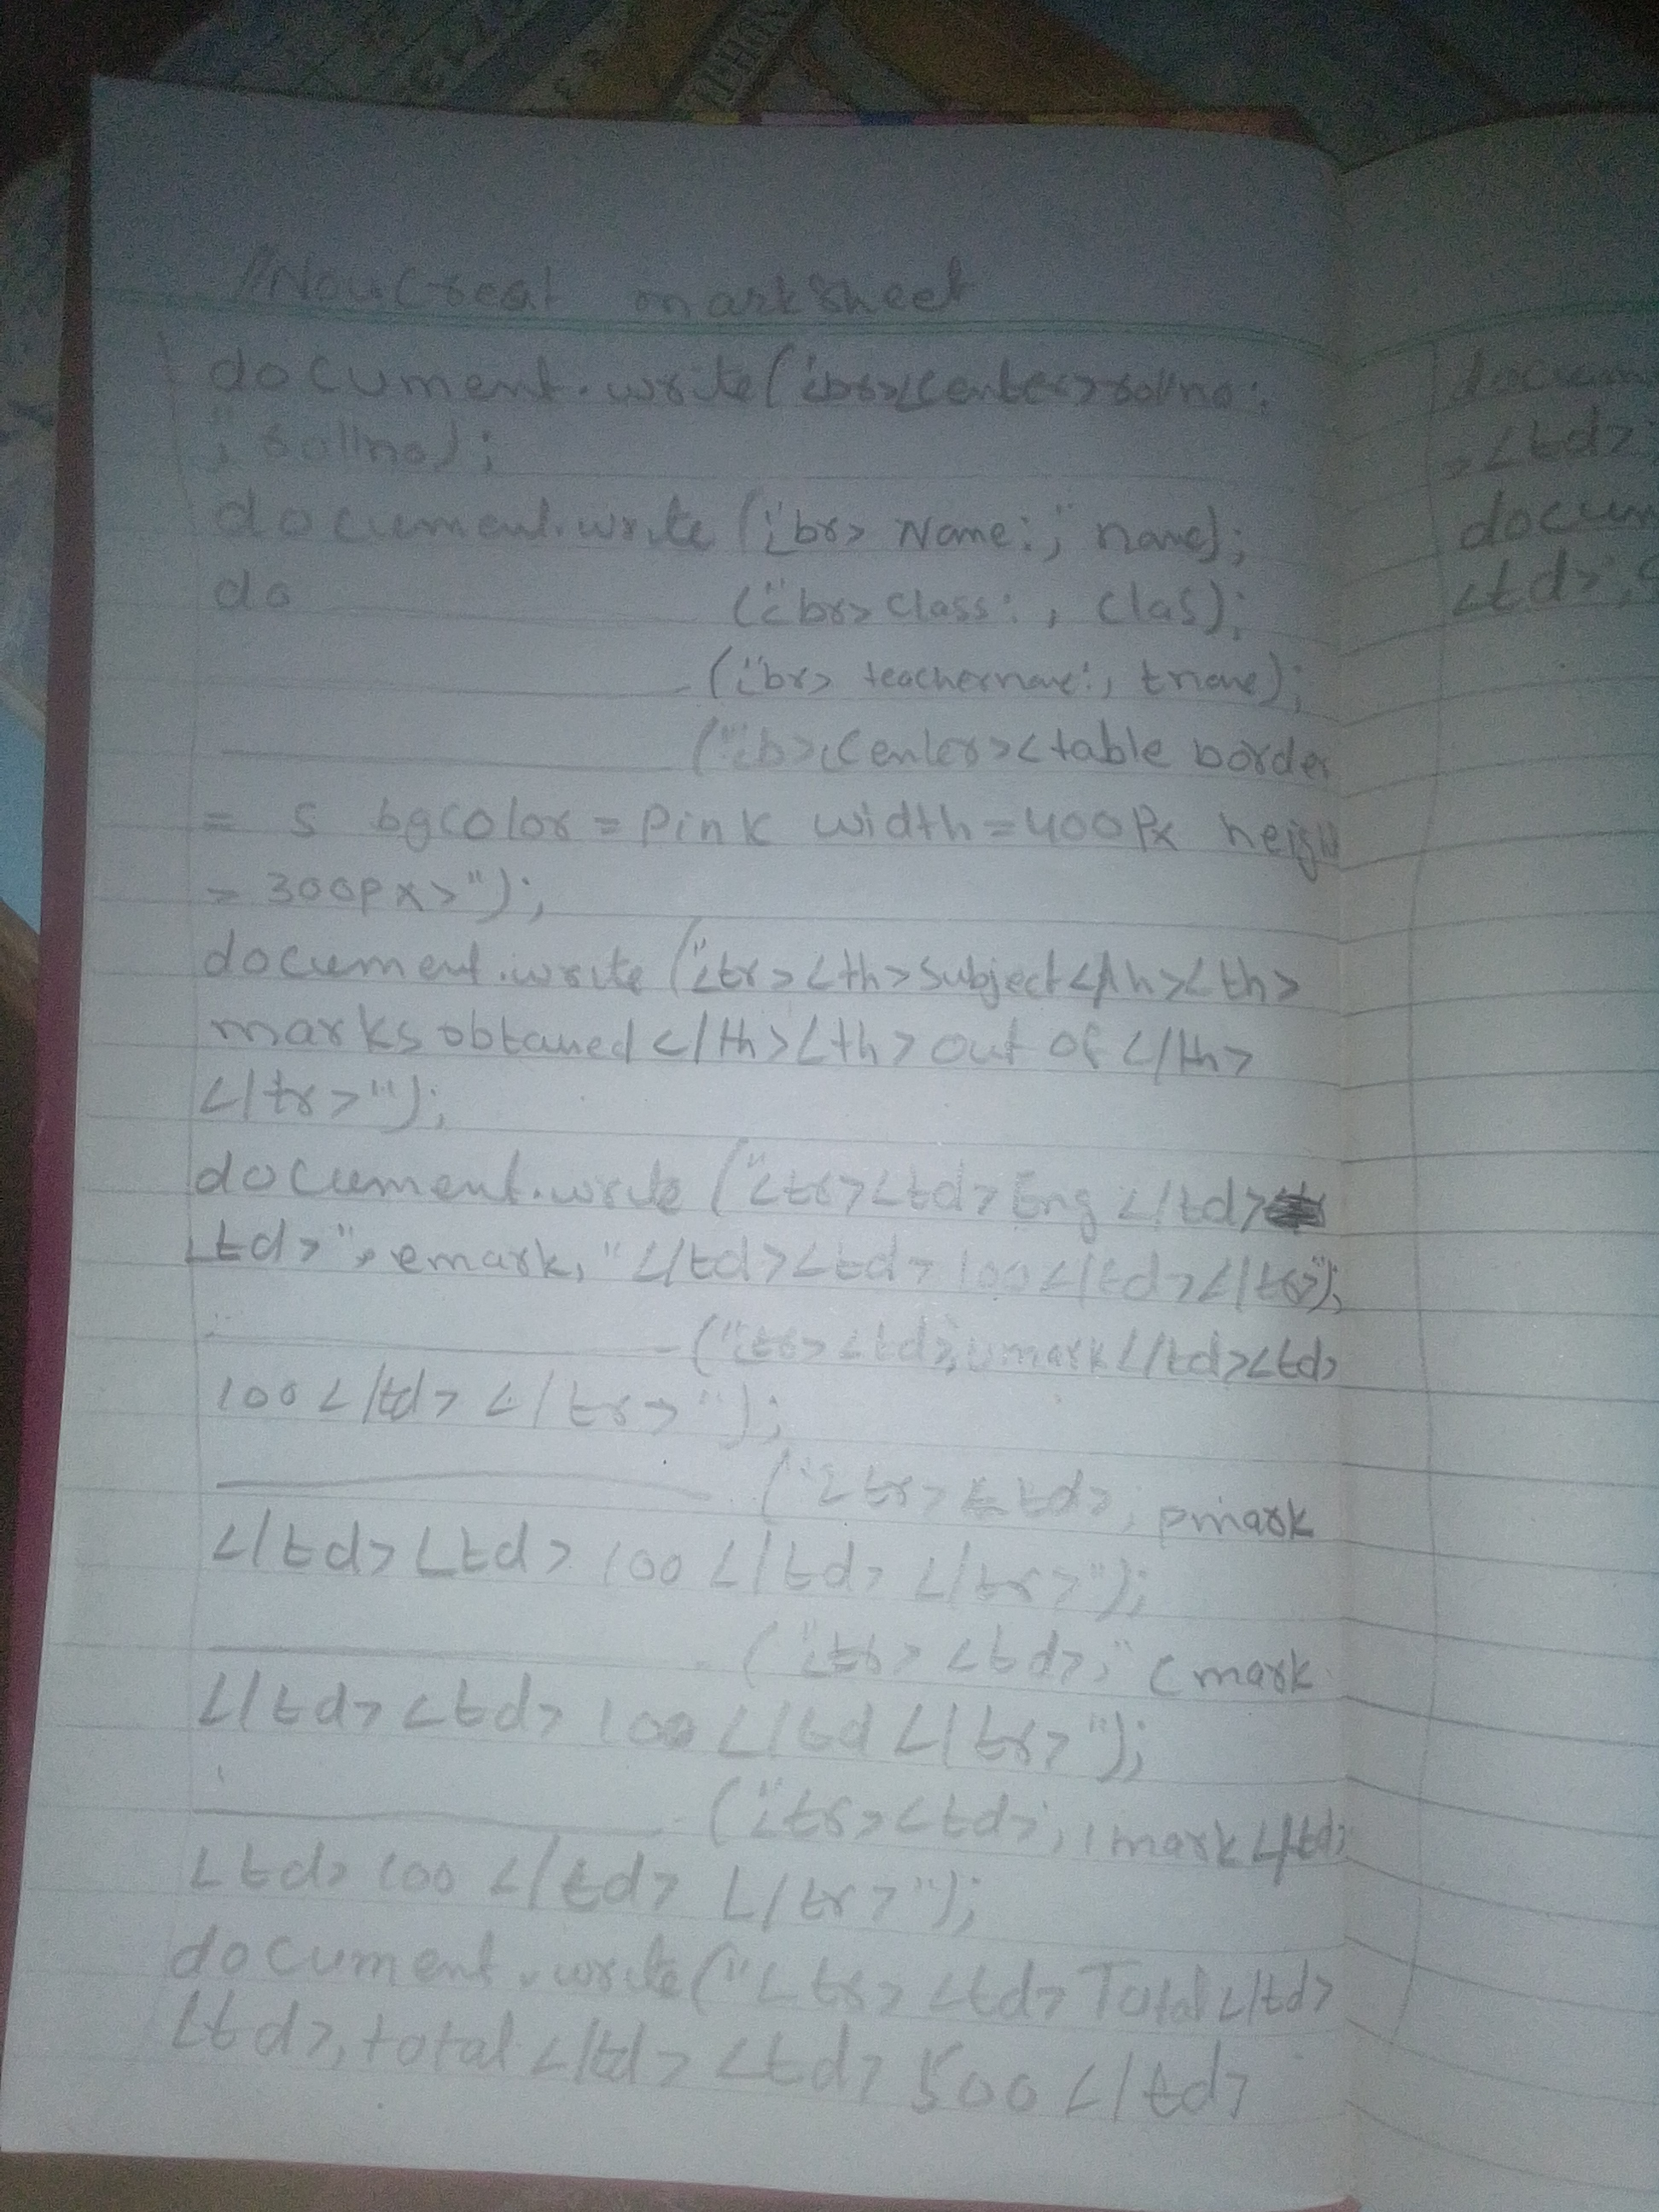 //Now Creat marksheet
document.write("<br><center>rollno:
", rollno);
document.write("<br> Name:," name);
do ("<br> class: , clas);
("<br> teachername:, tname);
("<b><center><table border
= 5 bgcolor = Pink width = 400Px heigh
= 300px>");
document.write("<tr><th>Subject</th><th>
marks obtaned</th><th>out of</th>
</tr>");
document.write("<tr><td>Eng</td>
<td>", emark, "</td><td>100</td></tr>");
("<tr><td>, umark</td><td>
100</td></tr>");
("<tr><td>, pmark
</td><td>100</td></tr>");
("<tr><td>," cmark
</td><td>100</td</tr>");
("<tr><td>, mark</td>
<td>100</td></tr>");
document.write("<tr><td>Total</td>
<td>, total</td><td>500</td>
docum
<td>
docum
<td>